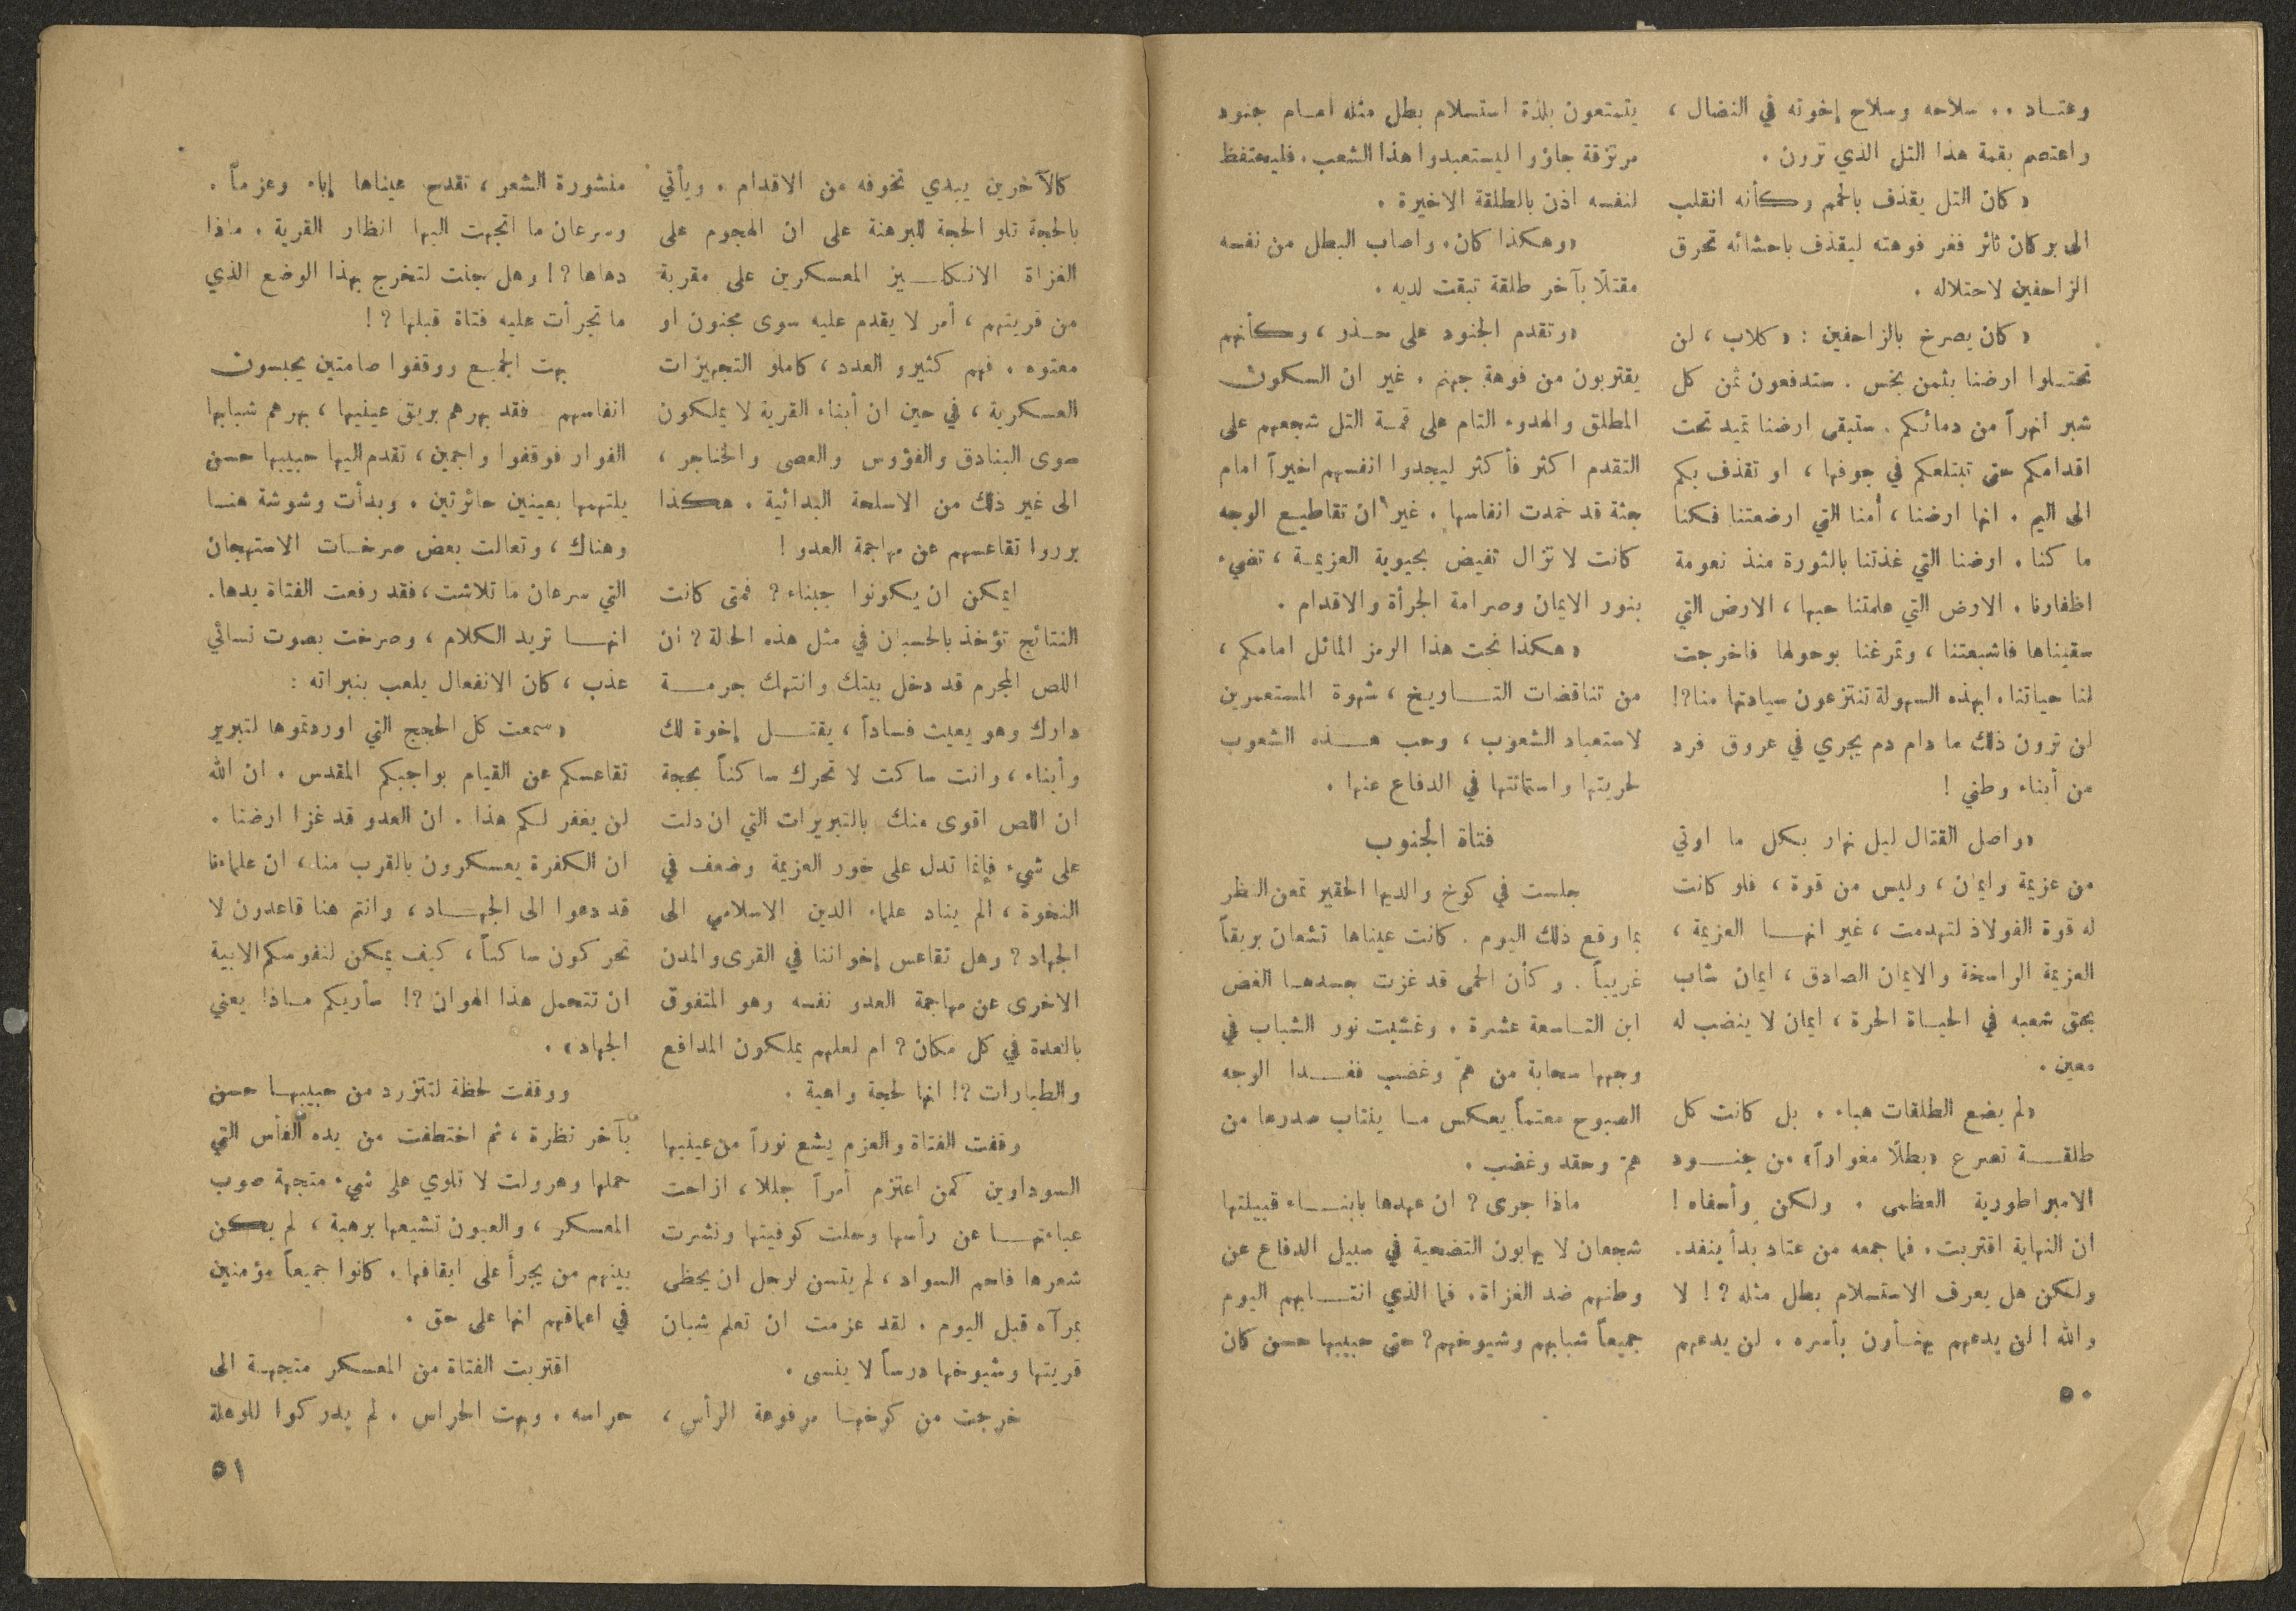 وعتاد .. سلاحه وسلاح إخوته في النضال ،
واعتصم بقمة هذا التل الذي ترون .
« كان التل يقذف بالحمم وكأنه انقلب
الى بركان ثائر فغر فوهته ليقذف باحشائه تحرق
الزاحفين لاحتلاله .
« كان يصرخ بالزاحفين : « كلاب ، لن
تحتلوا ارضنا بثمن بخس . ستدفعون ثمن كل
شبر انهراً من دمائكم . ستبقى ارضنا تميد تحت
اقدامكم حتى تبتلعكم في جوفها ، او تقذف بكم
الى اليم . انها ارضنا ، أمنا التي ارضعتنا فكنا
ما كنا . ارضنا التي غذتنا بالثورة منذ نعومة
اظفارنا . الارض التي علمتنا حبها ، الارض التي
سقيناها فاشبعتنا ، وتمرغنا بوحولها فاخرجت
لنا حياتنا . ابهذه السهولة تنتزعون سيادتها منا ؟!
لن ترون ذلك ما دام دم يجري في عروق فرد
من أبناء وطني !
« واصل القتال ليل نهار بكل ما اوتي
من عزيمة وايمان ، وليس من قوة ، فلو كانت
له قوة الفولاذ لتهدمت ، غير انها العزيمة ،
العزيمة الراسخة والايمان الصادق ، ايمان شاب
بحق شعبه في الحياة الحرة ، ايمان لا ينضب له
معين .
« لم يضع الطلقات هباء . بل كانت كل
طلقة تصرع « بطلاً مغواراً » من جنود
الامبراطورية العظمى . ولكن وأسفاه !
ان النهاية اقتربت . فما جمعه من عتاد بدأ ينفد .
ولكن هل يعرف الاستسلام بطل مثله ؟! لا
والله ! لن يدعهم يهنأون بأسره . لن يدعهم
٥٠
يتمتعون بلذة استسلام بطل مثله امام جنود
مرتزقة جاؤوا ليستعبدوا هذا الشعب . فليحتفظ
لنفسه اذن بالطلقة الاخيرة .
« وهكذا كان . واصاب البطل من نفسه
مقتلاً بآخر طلقة تبقت لديه .
« وتقدم الجنود على حذر ، وكأنهم
يقتربون من فوهة جهنم . غير ان السكون
المطلق والهدوء التام على قمة التل شجعهم على
التقدم اكثر فأكثر ليجدوا انفسهم اخيراً امام
جثة قد خمدت انفاسها . غير ان تقاطيع الوجه
كانت لا تزال تفيض بحيوية العزيمة ، تضيء
بنور الايمان وصرامة الجرأة والاقدام .
« هكذا نحت هذا الرمز الماثل امامكم ،
من تناقضات التاريخ ، شهوة المستعمرين
لاستعباد الشعوب ، وحب هذه الشعوب
لحريتها واستماتتها في الدفاع عنها .
فتاة الجنوب
جلست في كوخ والديها الحقير تمعن النظر
بما وقع ذلك اليوم . كانت عيناها تشعان بريقاً
غريباً . وكأن الحمى قد غزت جسدها الغض
ابن التاسعة عشرة . وغشيت نور الشباب في
وجهها سحابة من همّ وغضب فغدا الوجه
الصبوح معتماً يعكس ما ينتاب صدرها من
همّ وحقد وغضب .
ماذا جرى ؟ ان عهدها بابناء قبيلتها
شجعان لا يهابون التضحية في سبيل الدفاع عن
وطنهم ضد الغزاة . فما الذي انتابهم اليوم
جميعاً شبابهم وشيوخهم ؟ حتى حبيبها حسن كان
كالآخرين يبدي تخوفه من الاقدام . ويأتي
بالحجة تلو الحجة للبرهنة على ان الهجوم على
الغزاة الانكليز المعسكرين على مقربة
من قريتهم ، أمر لا يقدم عليه سوى مجنون او
معتوه . فهم كثيرو العدد ، كاملو التجهيزات
العسكرية ، في حين ان أبناء القرية لا يملكون
سوى البنادق والفؤوس والعصى والخناجر ،
الى غير ذلك من الاسلحة البدائية . هكذا
برروا تقاعسهم عن مهاجمة العدو !
ايمكن ان يكونوا جبناء ؟ فمتى كانت
النتائج تؤخذ بالحسبان في مثل هذه الحالة ؟ ان
اللص المجرم قد دخل بيتك وانتهك حرمة
دارك وهو يعيث فساداً ، يقتل إخوة لك
وأبناء ، وانت ساكت لا تحرك ساكناً بحجة
ان اللص اقوى منك بالتبريرات التي ان دلت
على شيء فإنما تدل على خور العزيمة وضعف في
النخوة ، الم يناد علماء الدين الاسلامي الى
الجهاد ؟ وهل تقاعس إخواننا في القرى والمدن
الاخرى عن مهاجمة العدو نفسه وهو المتفوق
بالعدة في كل مكان ؟ ام لعلهم يملكون المدافع
والطيارات ؟! انها لحجة واهية .
وقفت الفتاة والعزم يشع نوراً من عينيها
السوداوين كمن اعتزم أمراً جللا ، ازاحت
عباءتها عن رأسها وحلت كوفيتها ونشرت
شعرها فاحم السواد ، لم يتسن لرجل ان يحظى
بمرآه قبل اليوم . لقد عزمت ان تعلم شبان
قريتها وشيوخها درساً لا ينسى .
خرجت من كوخها مرفوعة الرأس ،
منشورة الشعر ، تقدح عيناها إباء وعزماً .
وسرعان ما اتجهت اليها انظار القرية . ماذا
دهاها ؟! وهل جنت لتخرج بهذا الوضع الذي
ما تجرأت عليه فتاة قبلها ؟!
بهت الجميع ووقفوا صامتين يحبسون
انفاسهم فقد بهرهم بريق عينيها ، بهرهم شبابها
الفوار فوقفوا واجمين ، تقدم اليها حبيبها حسن
يلتهمها بعينين حائرتين . وبدأت وشوشة هنا
وهناك ، وتعالت بعض صرخات الاستهجان
التي سرعان ما تلاشت ، فقد رفعت الفتاة يدها .
انها تريد الكلام ، وصرخت بصوت نسائي
عذب ، كان الانفعال يلعب بنبراته :
« سمعت كل الحجج التي اوردتموها لتبرير
تقاعسكم عن القيام بواجبكم المقدس . ان الله
لن يغفر لكم هذا . ان العدو قد غزا ارضنا .
ان الكفرة يعسكرون بالقرب منا ، ان علماءنا
قد دعوا الى الجهاد ، وانتم هنا قاعدون لا
تحركون ساكناً ، كيف يمكن لنفوسكم الابية
ان تتحمل هذا الهوان ؟! سأريكم ماذا يعني
الجهاد » .
ووقفت لحظة لتتزود من حبيبها حسن
بآخر نظرة ، ثم اختطفت من يده الفأس التي
حملها وهرولت لا تلوي على شيء متجهة صوب
المعسكر ، والعيون تشيعها برهبة ، لم يكن
بينهم من يجرأ على ايقافها . كانوا جميعاً مؤمنين
في اعماقهم انها على حق .
اقتربت الفتاة من المعسكر متجهة الى
حراسه . وبهت الحراس . لم يدركوا للوهلة
٥١